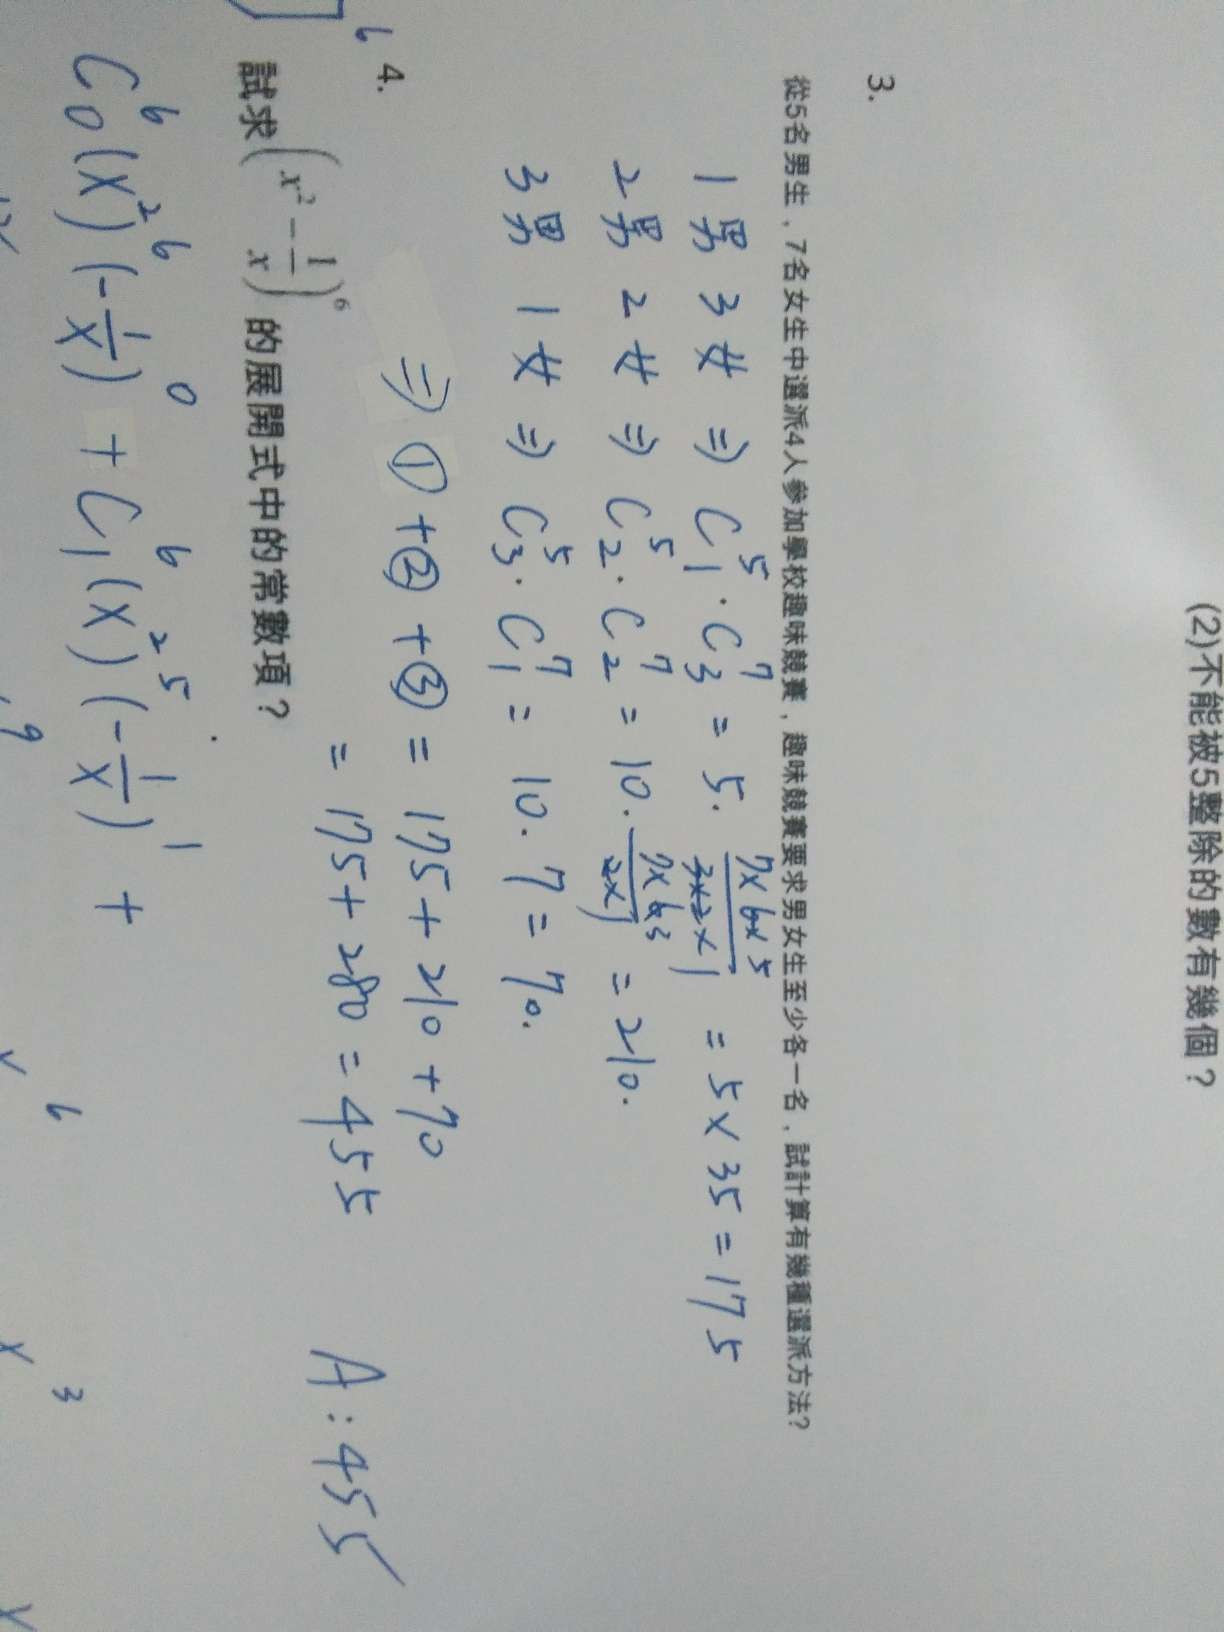 (2)不能被5整除的數有幾個？
3.
從5名男生，7名女生中選派4人參加學校趣味競賽，趣味競賽要求男女生至少各一名，試計算有幾種選派方法?
1男 3女 ⇒ C⁵₁·C⁷₃ = 5· 7×6×5/3×2×1 = 5×35 = 175
2男 2女 ⇒ C⁵₂·C⁷₂ = 10· 7×6 3/2×1 = 210.
3男 1女 ⇒ C⁵₃·C⁷₁ = 10·7 = 70.
⇒ ① + ② + ③ = 175 + 210 + 70
= 175 + 280 = 455 A:455
4.
試求(x² - 1/x)⁶ 的展開式中的常數項？
C⁶₀(x²)⁶(-1/x)⁰ + C⁶₁(x²)⁵(-1/x)¹ +